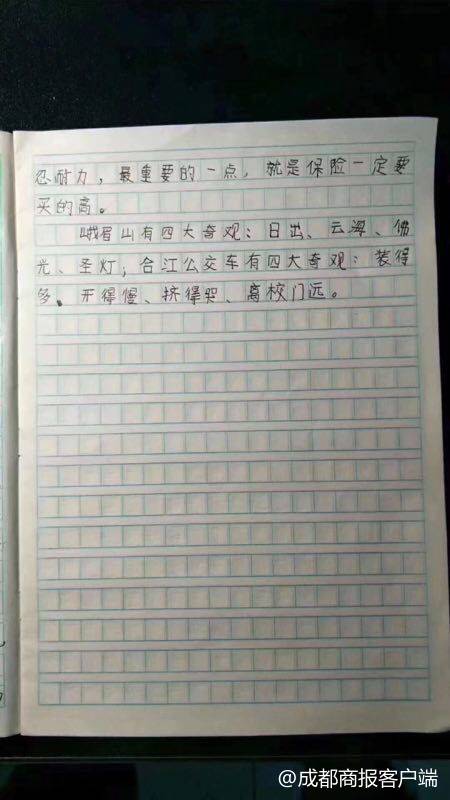 忍耐力，最重要的一点，就是保险一定要
买的高。
峨眉山有四大奇观：日出、云海、佛
光、圣灯，合江公交车有四大奇观：装得
多、开得慢、挤得哭、离校门远。
@成都商报客户端